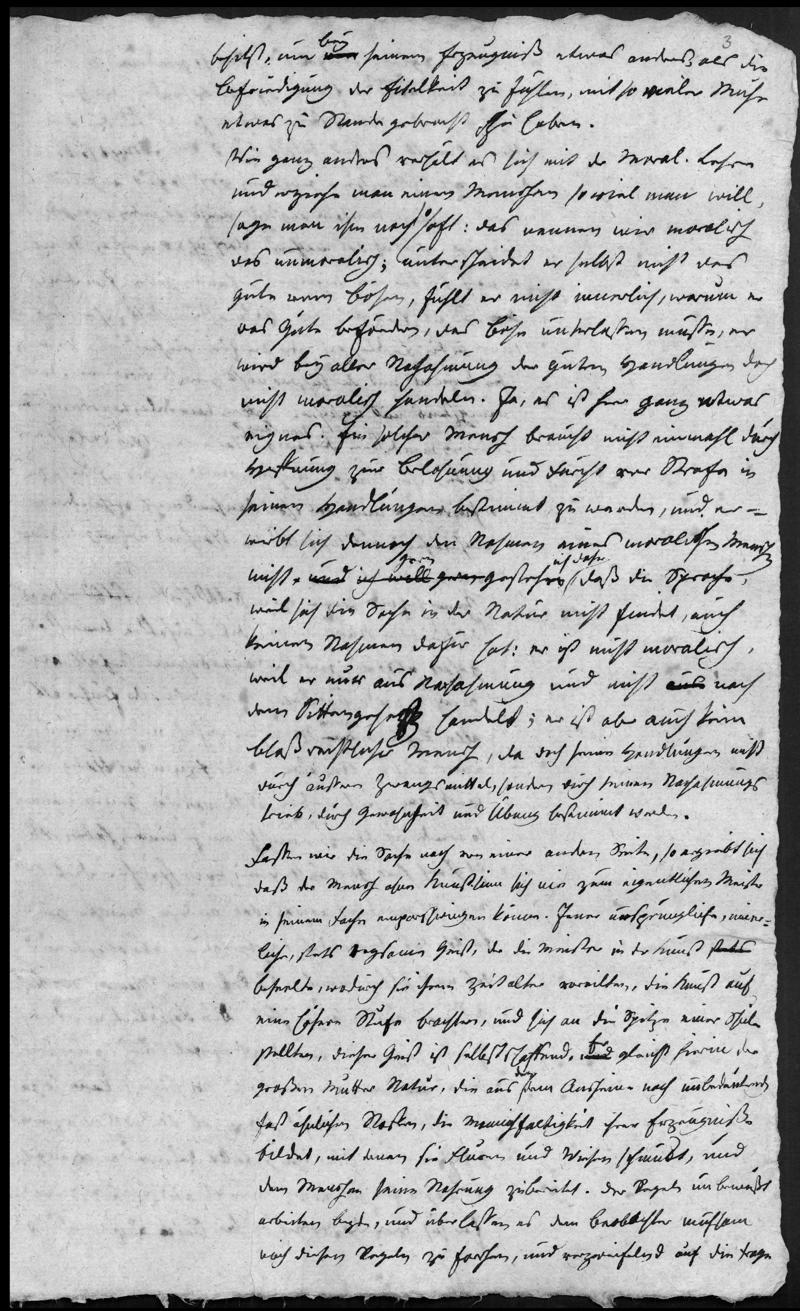 3
behilft, um bey seinem Erzeugniß etwas anders als die
Befriedigung der Eitelkeit zu fühlen, mit so vieler Mühe
etwas zu Stande gebracht zu haben.
Wie ganz anders verhält es sich mit der Moral. Lehre
und erziehe man einen Menschen so viel man will,
sage man ihm noch so oft: das nennen wir moralisch
das unmoralisch; unterscheidet er selbst nicht das
Gute vom Bösen, fühlt er nicht innerlich, warum er
das Gute befördern, das Böse unterlassen müsse, er
wird bey aller Nachahmung der guten Handlungen doch
nicht moralisch handeln. Ja, es ist hier ganz etwas
eignes. Ein solcher Mensch braucht nicht einmahl durch
Hoffnung zur Belohnung und Furcht vor Strafe in
seinen Handlungen bestimmt zu werden, und er=
wirbt sich dennoch den Nahmen eines moralischen Menschen
nicht, und ich will gern gestehen, daß die Sprache,
weil sich die Sache in der Natur nicht findet, auch
keinen Nahmen dafür hat: er ist nicht moralisch,
weil er nur aus Nachahmung und nicht aus nach
dem Sittengesetz handelt; er ist aber auch kein
bloß rechtlicher Mensch, da doch seine Handlungen nicht
durch äußere Zwangsmittel, sondern durch seinen Nachahmungs
trieb, durch Gewohnheit und Übung bestimmt werden.
Fassen wir die Sache noch von einer andern Seite, so ergiebt sich
daß der Mensch ohne Kunstsinn sich nie zum eigentlichen Meister
in seinem Fache emporschwingen könne. Jener ursprüngliche, inner=
liche, stets regsame Geist, der die Meister in der Kunst stets
beseelte, wodurch sie ihrem Zeitalter voreilten, die Kunst auf
eine höhere Stufe brachten, und sich an die Spitze einer Schule
stellten, dieser Geist ist selbstschaffend, und gleicht hierin der
großen Mutter Natur, die aus dem Ansehen nach unbedeutenden
fast ähnlichen Stoffen, die Mannichfaltigkeit ihrer Erzeugnisse
bildet, mit denen sie Fluren und Wiesen schmückt, und
dem Menschen seine Nahrung zubereitet. Der Regeln unbewußt
arbeiten beyde, und überlassen es dem Beobachter mühsam
nach diesen Regeln zu forschen, und verzweifelnd auf die Frage